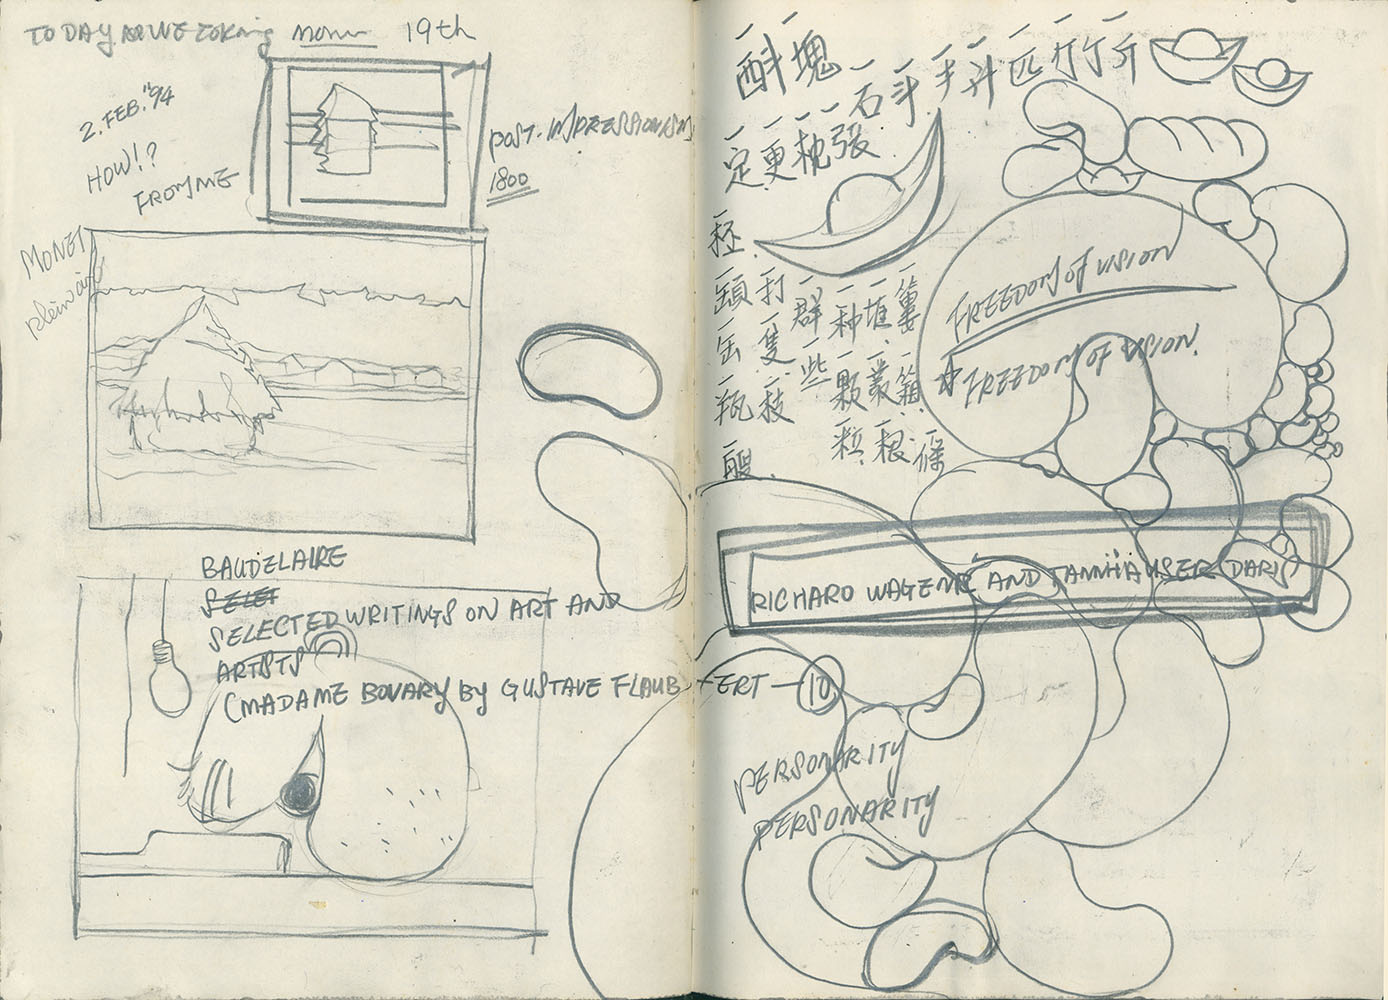 TODAY
19th
2. FEB. "94
HOW!?
FROM ME
POST-IMPRESSIONISM
1800
MONET
plein air
BAUDELAIRE
SELET
SELECTED WRITINGS ON ART AND
ARTSTS
(MADAME BOVARY BY GUSTAVE FLAUB-FERT — 10
一斟 一塊 一石 一斗 一手 一升 一匹 一打 一丁 一斤
一定 一更 一枕 一張
一頭 一打 一群 一種 一堆 一簍
一缶 一隻 一些 一顆 一叢 一箱
一瓶 一枝 一粒 一根 一條
一艘
FREEDOM OF VISION
FREEDOM OF VISION.
RICHARD WAGENR AND TANNHÄUSER (PARIS)
PERSONARITY
PERSONARITY